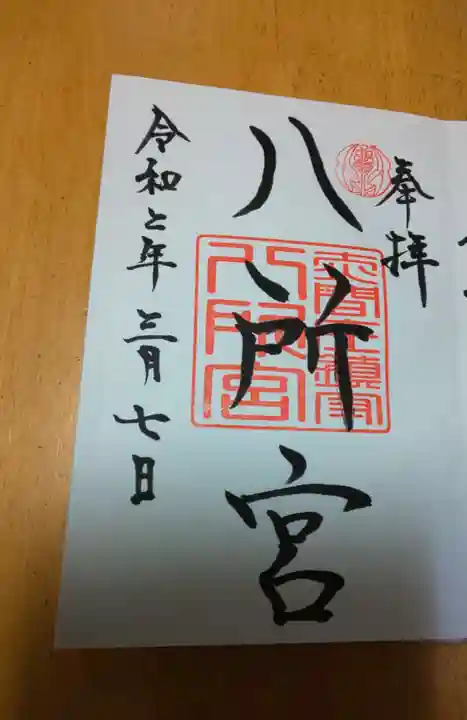 奉拝
八所宮
令和七年三月七日
八所宮